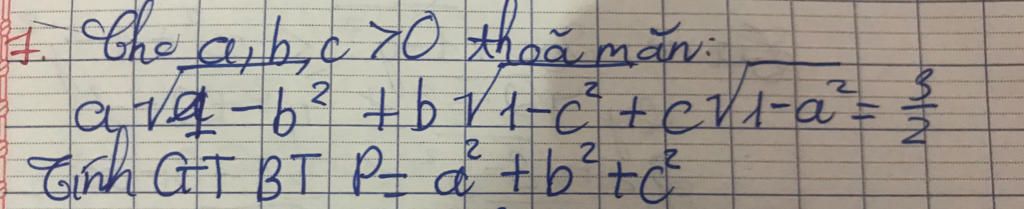 1. Cho a, b, c > 0 thoã mãn:
a√1 - b² + b√1 - c² + c√1 - a² = 3/2
Tính GT BT P = a² + b² + c²